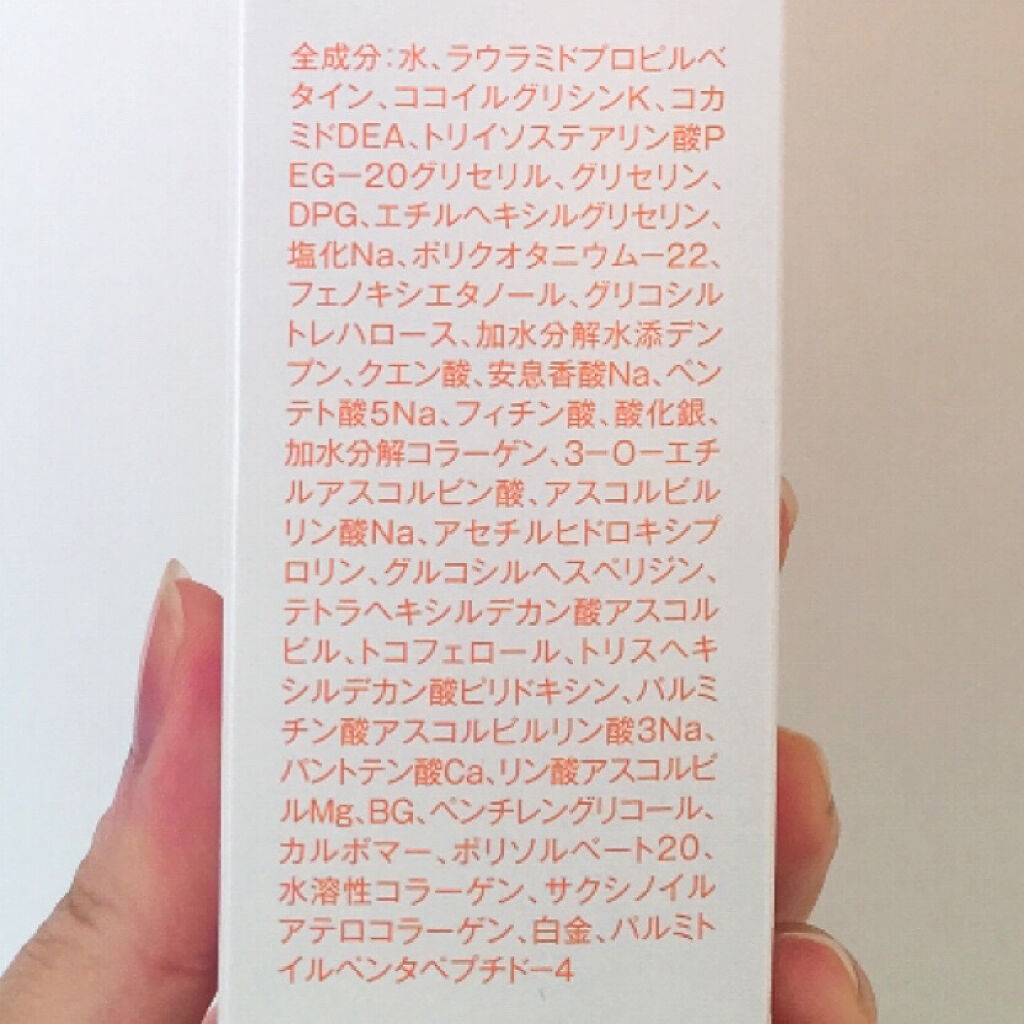 全成分:水、ラウラミドプロピルベ
タイン、ココイルグリシンK、コカ
ミドDEA、トリイソステアリン酸P
EG－20グリセリル、グリセリン、
DPG、エチルヘキシルグリセリン、
塩化Na、ポリクオタニウム－22、
フェノキシエタノール、グリコシル
トレハロース、加水分解水添デン
プン、クエン酸、安息香酸Na、ペン
テト酸5Na、フィチン酸、酸化銀、
加水分解コラーゲン、3－O－エチ
ルアスコルビン酸、アスコルビル
リン酸Na、アセチルヒドロキシプ
ロリン、グルコシルヘスペリジン、
テトラヘキシルデカン酸アスコル
ビル、トコフェロール、トリスヘキ
シルデカン酸ピリドキシン、パルミ
チン酸アスコルビルリン酸3Na、
パントテン酸Ca、リン酸アスコルビ
ルMg、BG、ペンチレングリコール、
カルボマー、ポリソルベート20、
水溶性コラーゲン、サクシノイル
アテロコラーゲン、白金、パルミト
イルペンタペプチド－4